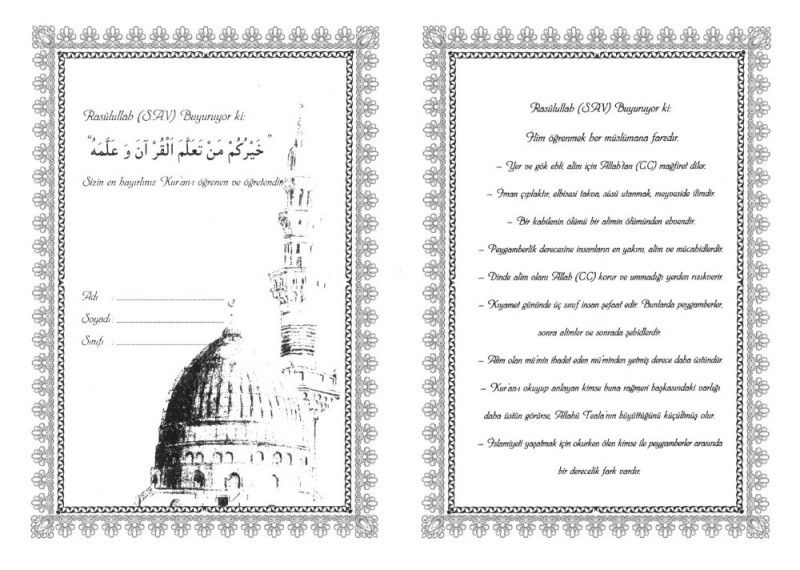 Rasûlullah (SAV) Buyuruyor ki:
"خَيْرُكُمْ مَنْ تَعَلَّمَ الْقُرْآنَ وَ عَلَّمَهُ"
Sizin en hayırlınız Kur'an-ı öğrenen ve öğretendir.
Adı :
Soyadı :
Sınıfı :
Rasûlullah (SAV) Buyuruyor ki:
İlim öğrenmek her müslümana farzdır.
~ Yer ve gök ehli, alim için Allah'tan (C.C) mağfiret diler.
~ İman çıplaktır, elbisesi takva, süsü utanmak, meyveside ilimdir.
~ Bir kabilenin ölümü bir alimin ölümünden ehvendir.
~ Peygamberlik derecesine insanların en yakını, alim ve mücahidlerdir.
~ Dinde alim olanı Allah (C.C) korur ve ummadığı yerden rızıkverir.
~ Kıyamet gününde üç sınıf insan şefaat edir. Bunlarda peygamberler,
sonra alimler ve sonrada şehidlerdir.
~ Alim olan mü'min ibadet eden mü'minden yetmiş derece daha üstündür.
~ Kur'an-ı okuyup anlayan kimse buna rağmen başkasındaki varlığı
daha üstün görürse, Allahü Teala'nın büyüttüğünü küçültmüş olur.
~ İslamiyeti yaşatmak için okurken ölen kimse ile peygamberler arasında
bir derecelik fark vardır.